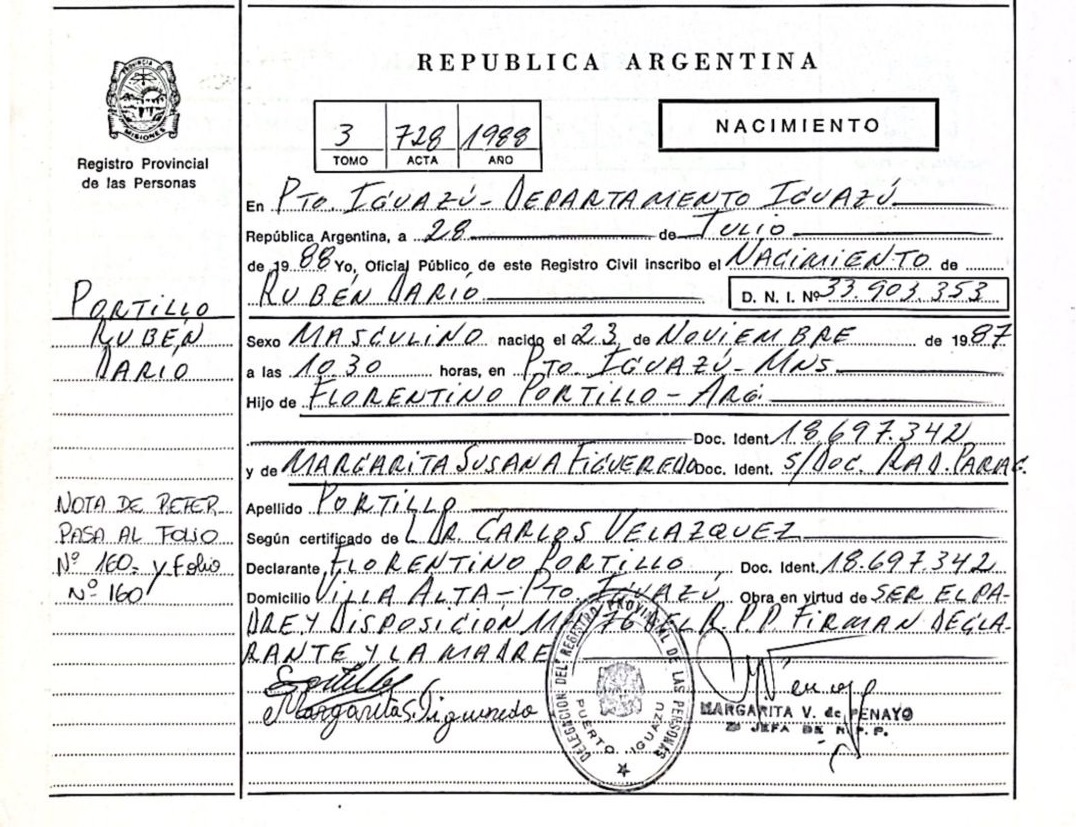 PROVINCIA DE
MISIONES
Registro Provincial
de las Personas
REPUBLICA ARGENTINA
3 728 1988
TOMO ACTA AÑO
NACIMIENTO
En PTO. IGUAZÚ - DEPARTAMENTO IGUAZÚ
República Argentina, a 28 de JULIO
de 1988 Yo, Oficial Público de este Registro Civil inscribo el NACIMIENTO de
RUBÉN DARÍO D. N. I. Nº 33.903.353
Sexo MASCULINO nacido el 23 de NOVIEMBRE de 1987
a las 10.30 horas, en PTO. IGUAZÚ - MNS
Hijo de FLORENTINO PORTILLO - ARG.
Doc. Ident. 18.697.342
y de MARGARITA SUSANA FIGUEREDO Doc. Ident. S/DOC. RAD. PARAG.
Apellido PORTILLO
Según certificado de L DR. CARLOS VELAZQUEZ
Declarante FLORENTINO PORTILLO Doc. Ident. 18.697.342
Domicilio VILLA ALTA - PTO. IGUAZÚ Obra en virtud de SER EL PA-
DRE Y DISPOSICIÓN DEL R.P.P. FIRMAN DECLA-
RANTE Y LA MADRE
Margarita S. Figueredo
DELEGACION DEL REGISTRO PROVINCIAL DE LAS PERSONAS
PUERTO IGUAZU
MARGARITA V. de PENAYO
JEFA DE R. P. P.
PORTILLO
RUBÉN
DARÍO
NOTA DE REFER.
PASA AL FOLIO
Nº 160. y Folio
Nº 160